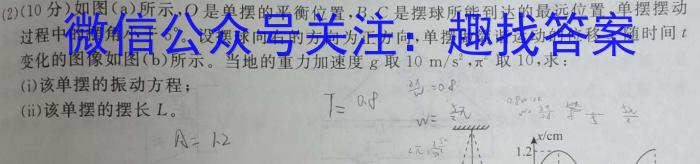 (2)(10分)如图(a)所示,O是单摆的平衡位置,B、C是摆球所能到达的最远位置,单摆摆动
微信公众号关注：趣找答案
过程中 摆角小于5°,设摆球向右的方向为正方向,单摆 位移 随时间t
变化的图像如图(b)所示。当地的重力加速度g取10 m/s²,π²取10,求:
(i)该单摆的振动方程;
(ii)该单摆的摆长L。
T= 0.8
A= 1.2
x/cm
1.2